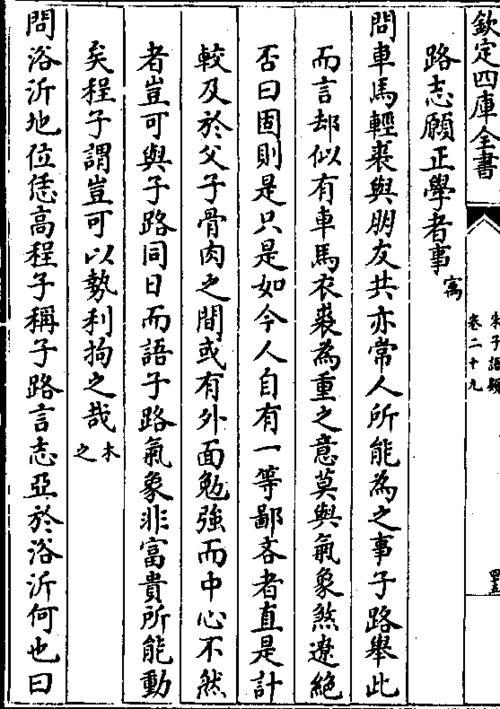 欽定四庫全書
朱子語類
卷二十九
路志願正學者事寓
問車馬輕裘與朋友共亦常人所能為之事子路舉此
而言却似有車馬衣裘為重之意莫與氣象煞遼絶
否曰固則是只是如今人自有一等鄙吝者直是計
較及於父子骨肉之間或有外面勉強而中心不然
者豈可與子路同日而語子路氣象非富貴所能動
矣程子謂豈可以勢利拘之哉木之
問浴沂地位恁高程子稱子路言志亞於浴沂何也曰